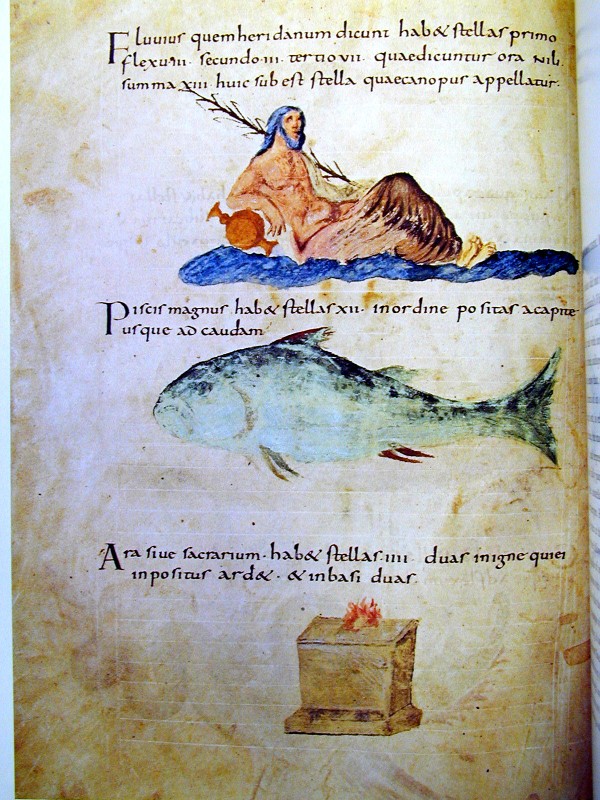 Fluvius quem heridanum dicunt hab& stellas primo
flexu·III· secundo·III· tertio VII· quae dicuntur ora Nili·
summa XIII· huic subest stella quae canopus appellatur·
Piscis magnus hab& stellas XII· in ordine positas a capite
usque ad caudam
Ara sive sacrarium· hab& stellas·IIII· duas in igne qui ei
inpositus ard&· & in basi duas